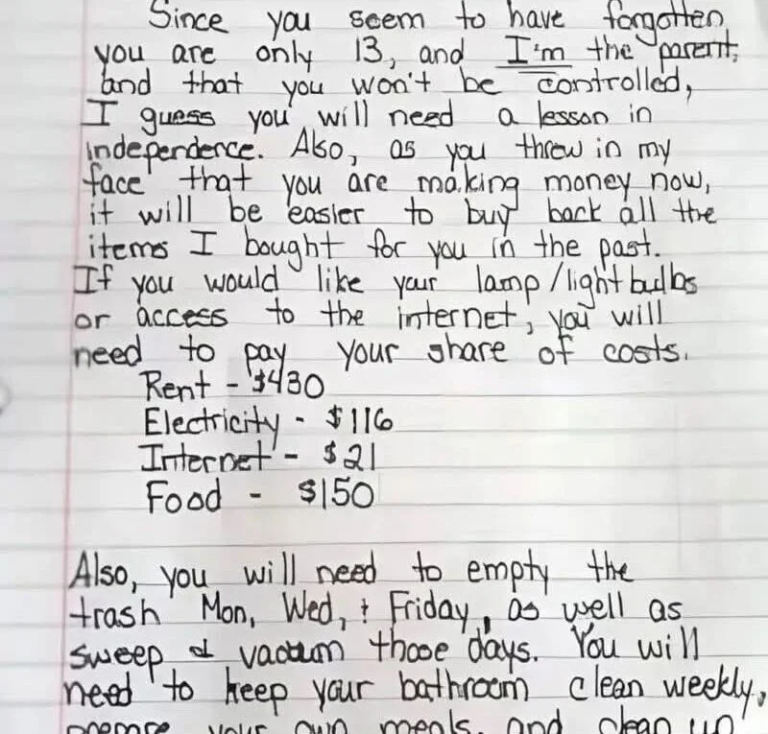 Since you seem to have forgotten
you are only 13, and I'm the parent,
and that you won't be controlled,
I guess you will need a lesson in
independence. Also, as you threw in my
face that you are making money now,
it will be easier to buy back all the
items I bought for you in the past.
If you would like your lamp/lightbulbs
or access to the internet, you will
need to pay your share of costs.
Rent - $430
Electricity - $116
Internet - $21
Food - $150
Also, you will need to empty the
trash Mon, Wed, + Friday, as well as
sweep & vacuum those days. You will
need to keep your bathroom clean weekly,
prepare your own meals, and clean up